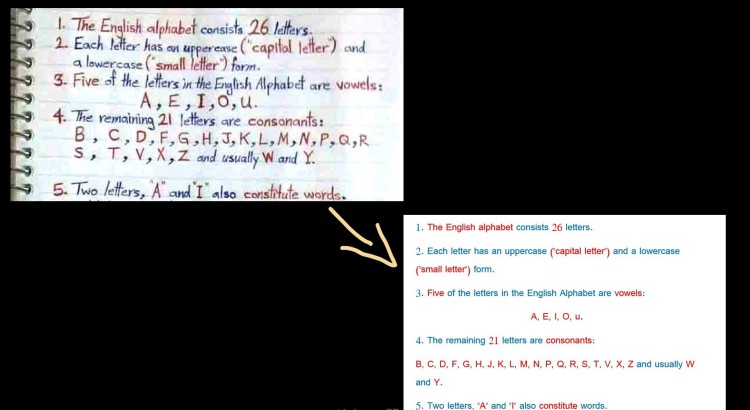 1. The English alphabet consists 26 letters.
2. Each letter has an uppercase ("capital letter") and
a lowercase ("small letter") form.
3. Five of the letters in the English Alphabet are vowels:
A, E, I, O, u.
4. The remaining 21 letters are consonants:
B, C, D, F, G, H, J, K, L, M, N, P, Q, R
S, T, V, X, Z and usually W and Y.
5. Two letters, "A" and "I" also constitute words.
1. The English alphabet consists 26 letters.
2. Each letter has an uppercase ('capital letter') and a lowercase
('small letter') form.
3. Five of the letters in the English Alphabet are vowels:
A, E, I, O, u.
4. The remaining 21 letters are consonants:
B, C, D, F, G, H, J, K, L, M, N, P, Q, R, S, T, V, X, Z and usually W
and Y.
5. Two letters, 'A' and 'I' also constitute words.